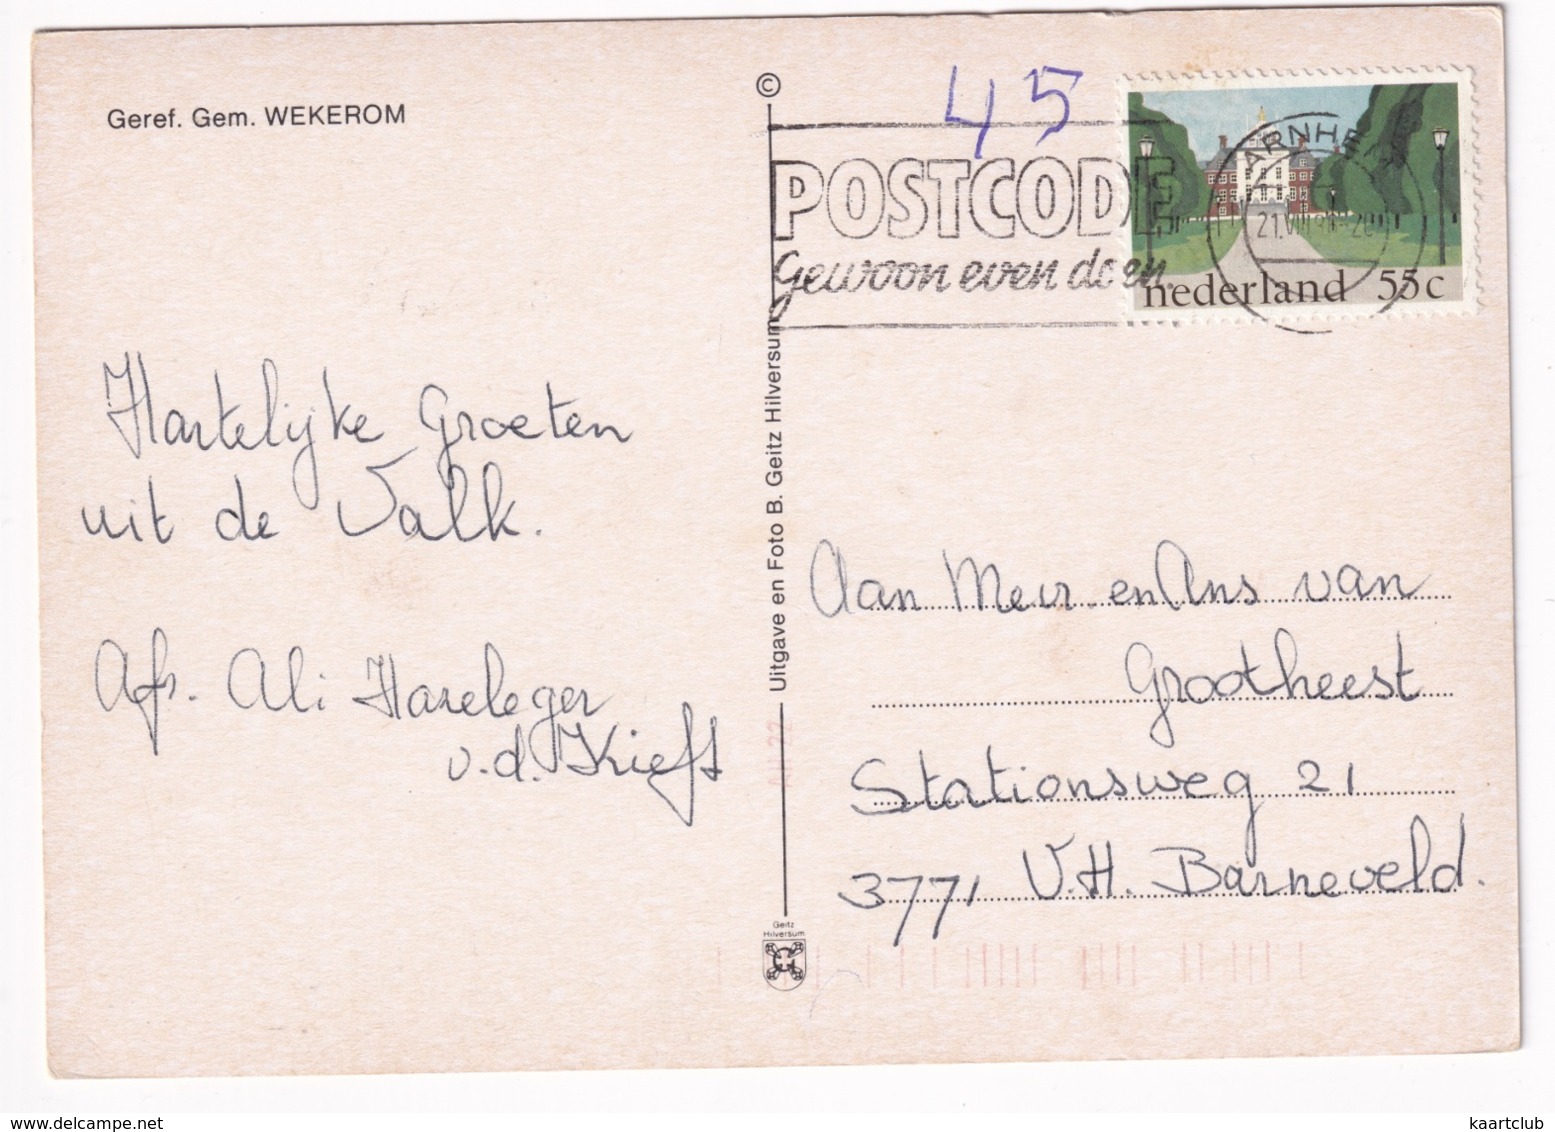 Geref. Gem. WEKEROM
©
45
POSTCODE
gewoon even doen
ARNHE
nederland 55c
Uitgave en Foto B. Geitz Hilversum
Hartelijke Groeten
uit de Valk.
Afs. Ali Hazeleger
v.d. Kieft
Aan Meur. en Ans van
Grootheest
Stationsweg 21
3771 V.H. Barneveld.
Geitz
Hilversum
www.delcampe.net
kaartclub